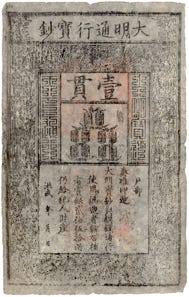 大明通行寶鈔
壹貫
戶部
奏准印造
大明寶鈔與銅錢通行
使用偽造者斬告捕
仍給犯人財產
洪武 年 月 日